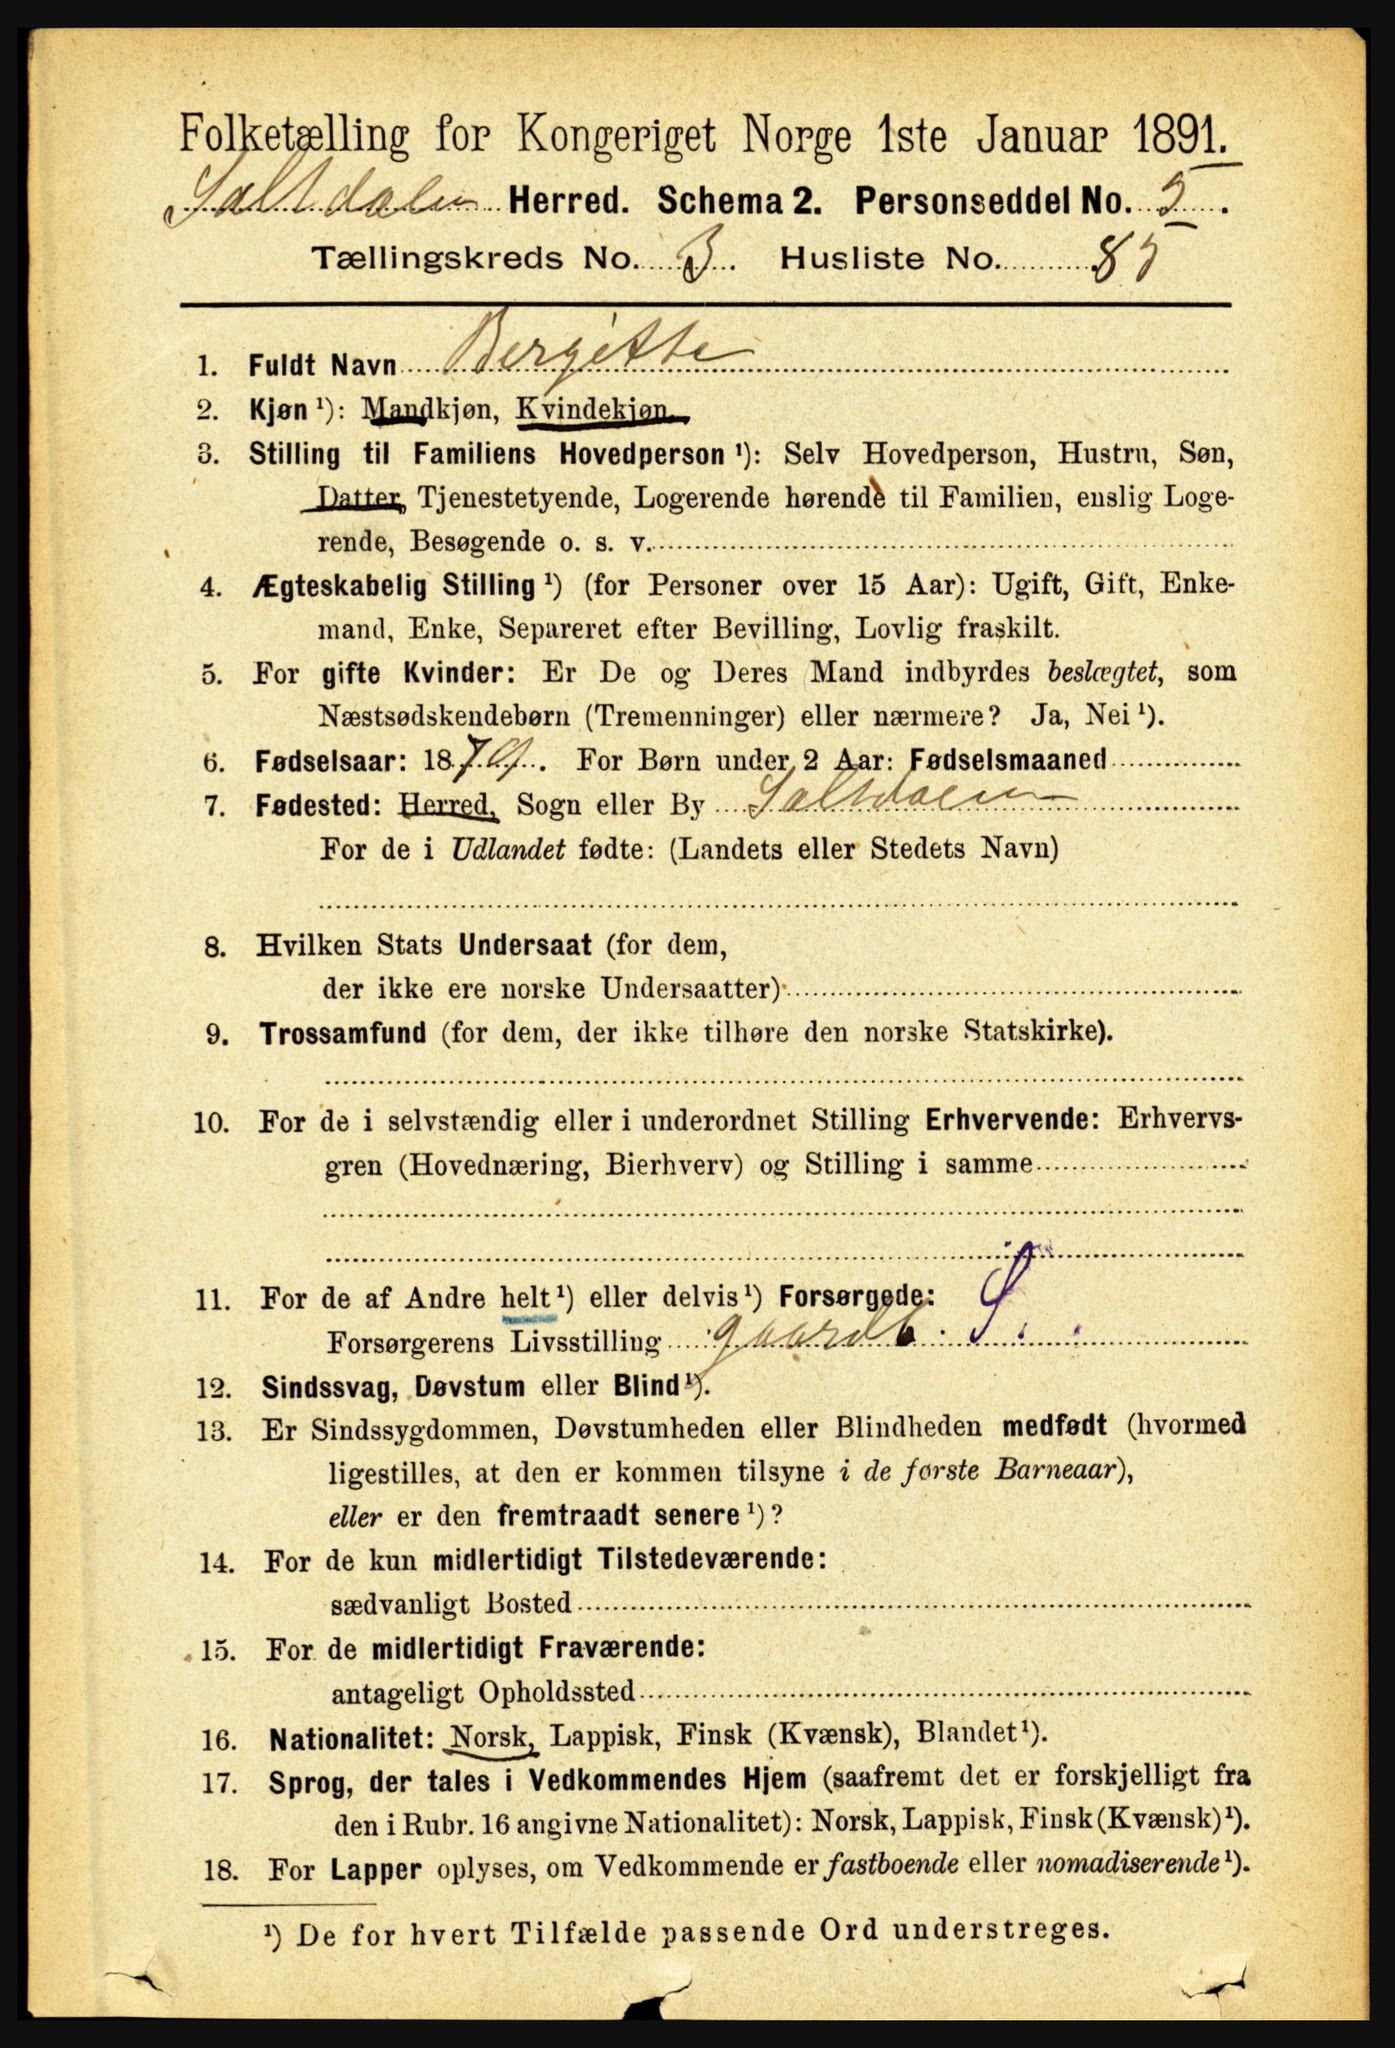 Folketælling for Kongeriget Norge 1ste Januar 1891.
Saltdalen Herred. Schema 2. Personseddel No. 5.
Tællingskreds No. 3. Husliste No. 85
1. Fuldt Navn Bergitte
2. Kjøn ¹): Mandkjøn, Kvindekjøn.
3. Stilling til Familiens Hovedperson ¹): Selv Hovedperson, Hustru, Søn,
Datter, Tjenestetyende, Logerende hørende til Familien, enslig Loge-
rende, Besøgende o. s. v.
4. Ægteskabelig Stilling ¹) (for Personer over 15 Aar): Ugift, Gift, Enke-
mand, Enke, Separeret efter Bevilling, Lovlig fraskilt.
5. For gifte Kvinder: Er De og Deres Mand indbyrdes beslægtet, som
Næstsødskendebørn (Tremenninger) eller nærmere? Ja, Nei ¹).
6. Fødselsaar: 1879. For Børn under 2 Aar: Fødselsmaaned
7. Fødested: Herred, Sogn eller By Saltdalen
For de i Udlandet fødte: (Landets eller Stedets Navn)
8. Hvilken Stats Undersaat (for dem,
der ikke ere norske Undersaatter)
9. Trossamfund (for dem, der ikke tilhøre den norske Statskirke).
10. For de i selvstændig eller i underordnet Stilling Erhvervende: Erhvervs-
gren (Hovednæring, Bierhverv) og Stilling i samme
11. For de af Andre helt ¹) eller delvis ¹) Forsørgede:
Forsørgerens Livsstilling gaardb. S.
12. Sindssvag, Døvstum eller Blind ¹).
13. Er Sindssygdommen, Døvstumheden eller Blindheden medfødt (hvormed
ligestilles, at den er kommen tilsyne i de første Barneaar),
eller er den fremtraadt senere ¹)?
14. For de kun midlertidigt Tilstedeværende:
sædvanligt Bosted
15. For de midlertidigt Fraværende:
antageligt Opholdssted
16. Nationalitet: Norsk, Lappisk, Finsk (Kvænsk), Blandet ¹).
17. Sprog, der tales i Vedkommendes Hjem (saafremt det er forskjelligt fra
den i Rubr. 16 angivne Nationalitet): Norsk, Lappisk, Finsk (Kvænsk) ¹).
18. For Lapper oplyses, om Vedkommende er fastboende eller nomadiserende ¹).
¹) De for hvert Tilfælde passende Ord understreges.